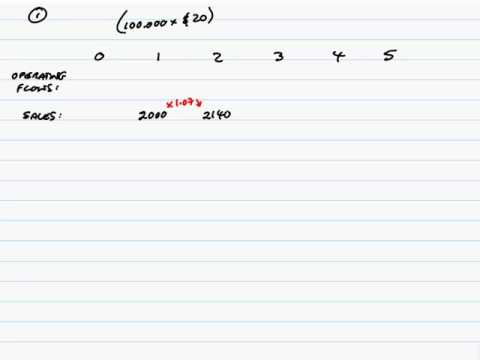 1
(100.000 x $20)
0 1 2 3 4 5
OPERATING
FLOWS:
x1.07
SALES: 2000 2140